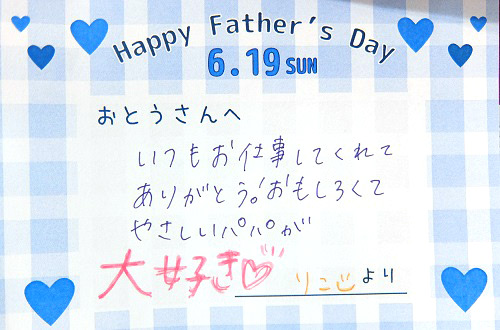 Happy Father's Day
6.19 SUN
おとうさんへ
いつもお仕事してくれて
ありがとう。おもしろくて
やさしいパパが
大好き♡
りこじより